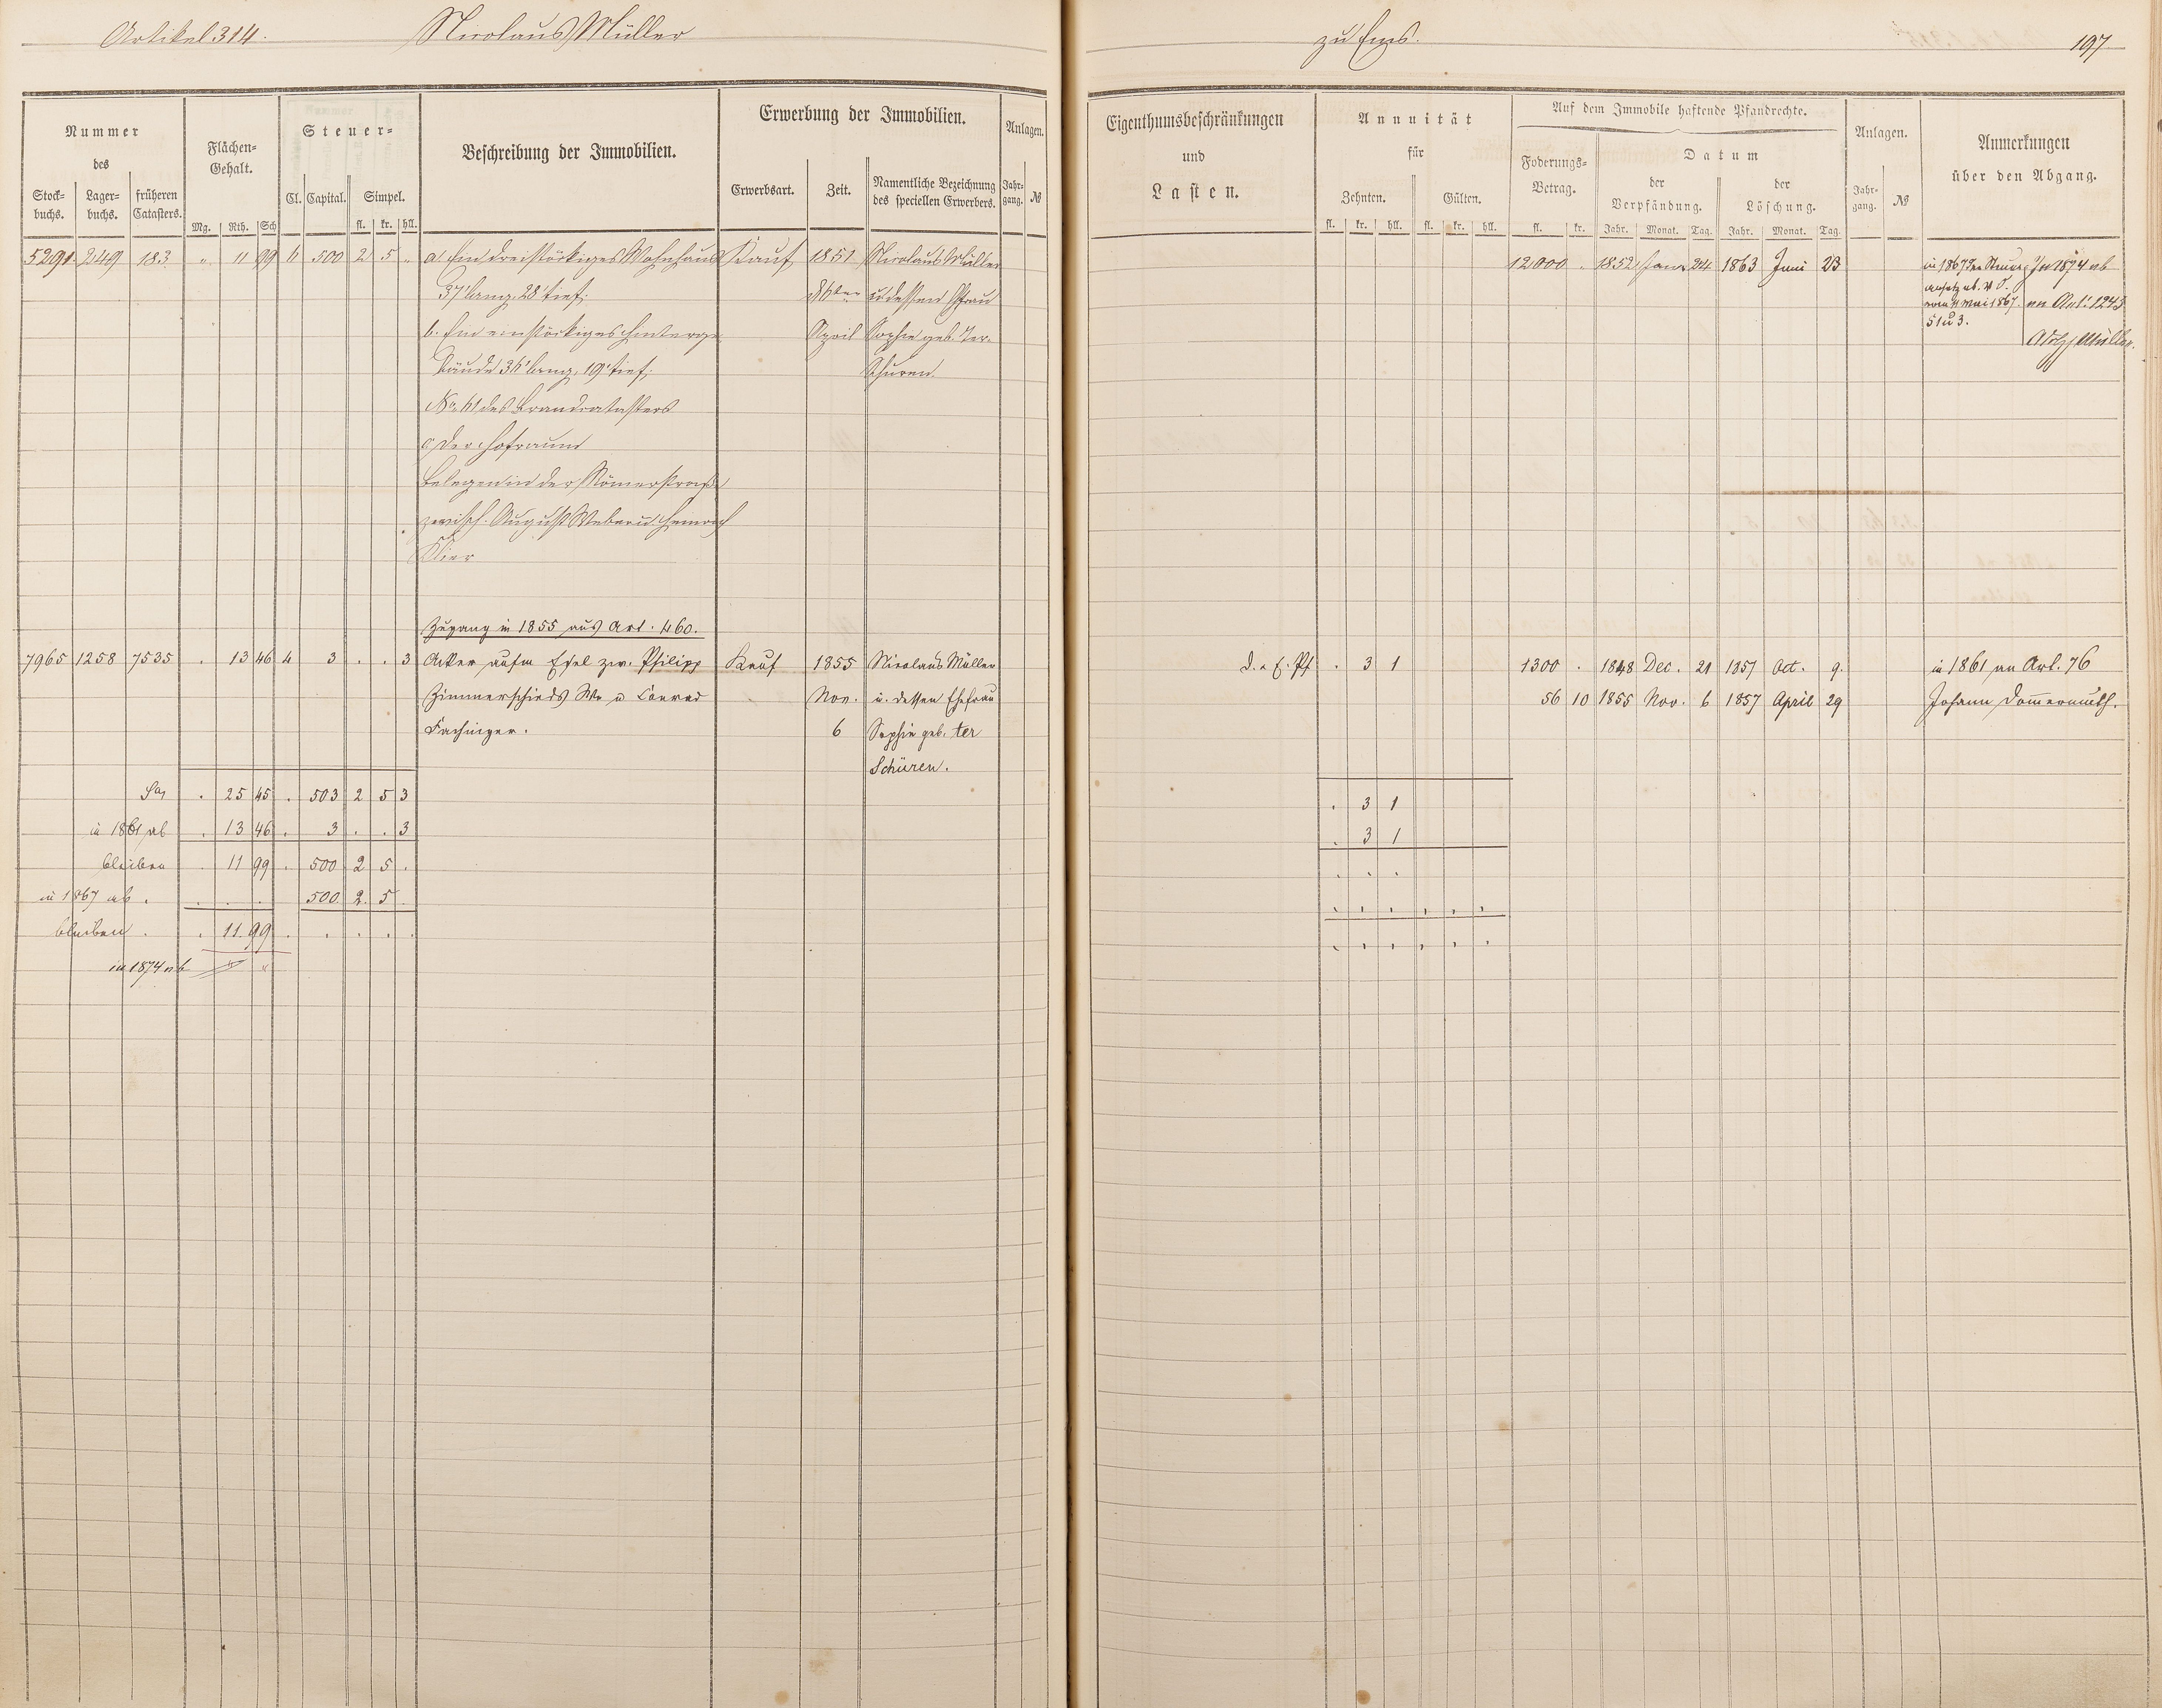 Artikel 314. Nicolaus Müller
Nummer
des
Stock-
buchs.
Lager-
buchs.
früheren
Catasters.
Flächen-
Gehalt.
Mg. Rth. Sch
Steuer-
Cl. Capital. Simpel.
fl. kr. hll.
Beschreibung der Immobilien.
Erwerbung der Immobilien.
Erwerbsart. Zeit.
Namentliche Bezeichnung
des speciellen Erwerbers.
Anlagen.
Jahr-
gang.
№
5291 249 183 " 11 99 6 500 2 5 " a, Ein dreistöckiges Wohnhaus Kauf 1851 Nicolaus Müller
37' lang, 28' tief; u dessen Ehfrau
b. Ein einstöckiges Hinterge April Sophie geb. Ter-
bäude 36' lang, 19' tief; Schuren.
No 61 des Brandcatasters
c, Der Hofraum
Belegen in der Römerstraße
zwisch. August Weber u. Heinrich
Klier
Zugang in 1855 aus Art. 460.
7965 1258 7535 . 13 46 4 3 . . 3 Acker aufm Esel zw. Philipp Kauf 1855 Nicolaus Müller
Zimmerschieds We u Conrad Nov. u. dessen Ehefrau
Fachinger. 6 Sophie geb. ter
Schüren.
Sa . 25 45 . 503 2 5 3
in 1861 ab . 13 46 . 3 . . 3
bleiben . 11 99 . 500 2 5 .
in 1867 ab . . . . 500 2 5 .
bleiben . . 11 99 . . . . .
in 1874 ab
zu Ems. 197
Eigenthumsbeschränkungen
und
Lasten.
Annuität
für
Zehnten. Gülten.
fl. kr. hll. fl. kr. hll.
Auf dem Immobile haftende Pfandrechte.
Foderungs-
Betrag.
fl. kr.
Datum
der
Verpfändung.
Jahr. Monat. Tag.
der
Löschung.
Jahr. Monat. Tag.
Anlagen.
Jahr-
gang.
№
Anmerkungen
über den Abgang.
12000 . 1852 Janr 24 1863 Juni 23
in 1867 der Steuer
ansatz ab. V. I.
vom 11 Mai 1867.
51 u 3.
In 1874 ab
an Art. 1243
Adolf Müller.
D. . E. Pf . 3 1 1300 . 1848 Dec. 21 1857 Oct. 9. in 1861 an Art. 76
56 10 1855 Nov. 6 1857 April 29 Johann Dommermuth.
. 3 1
. 3 1
. . .
. . . . . .
. . . . . .